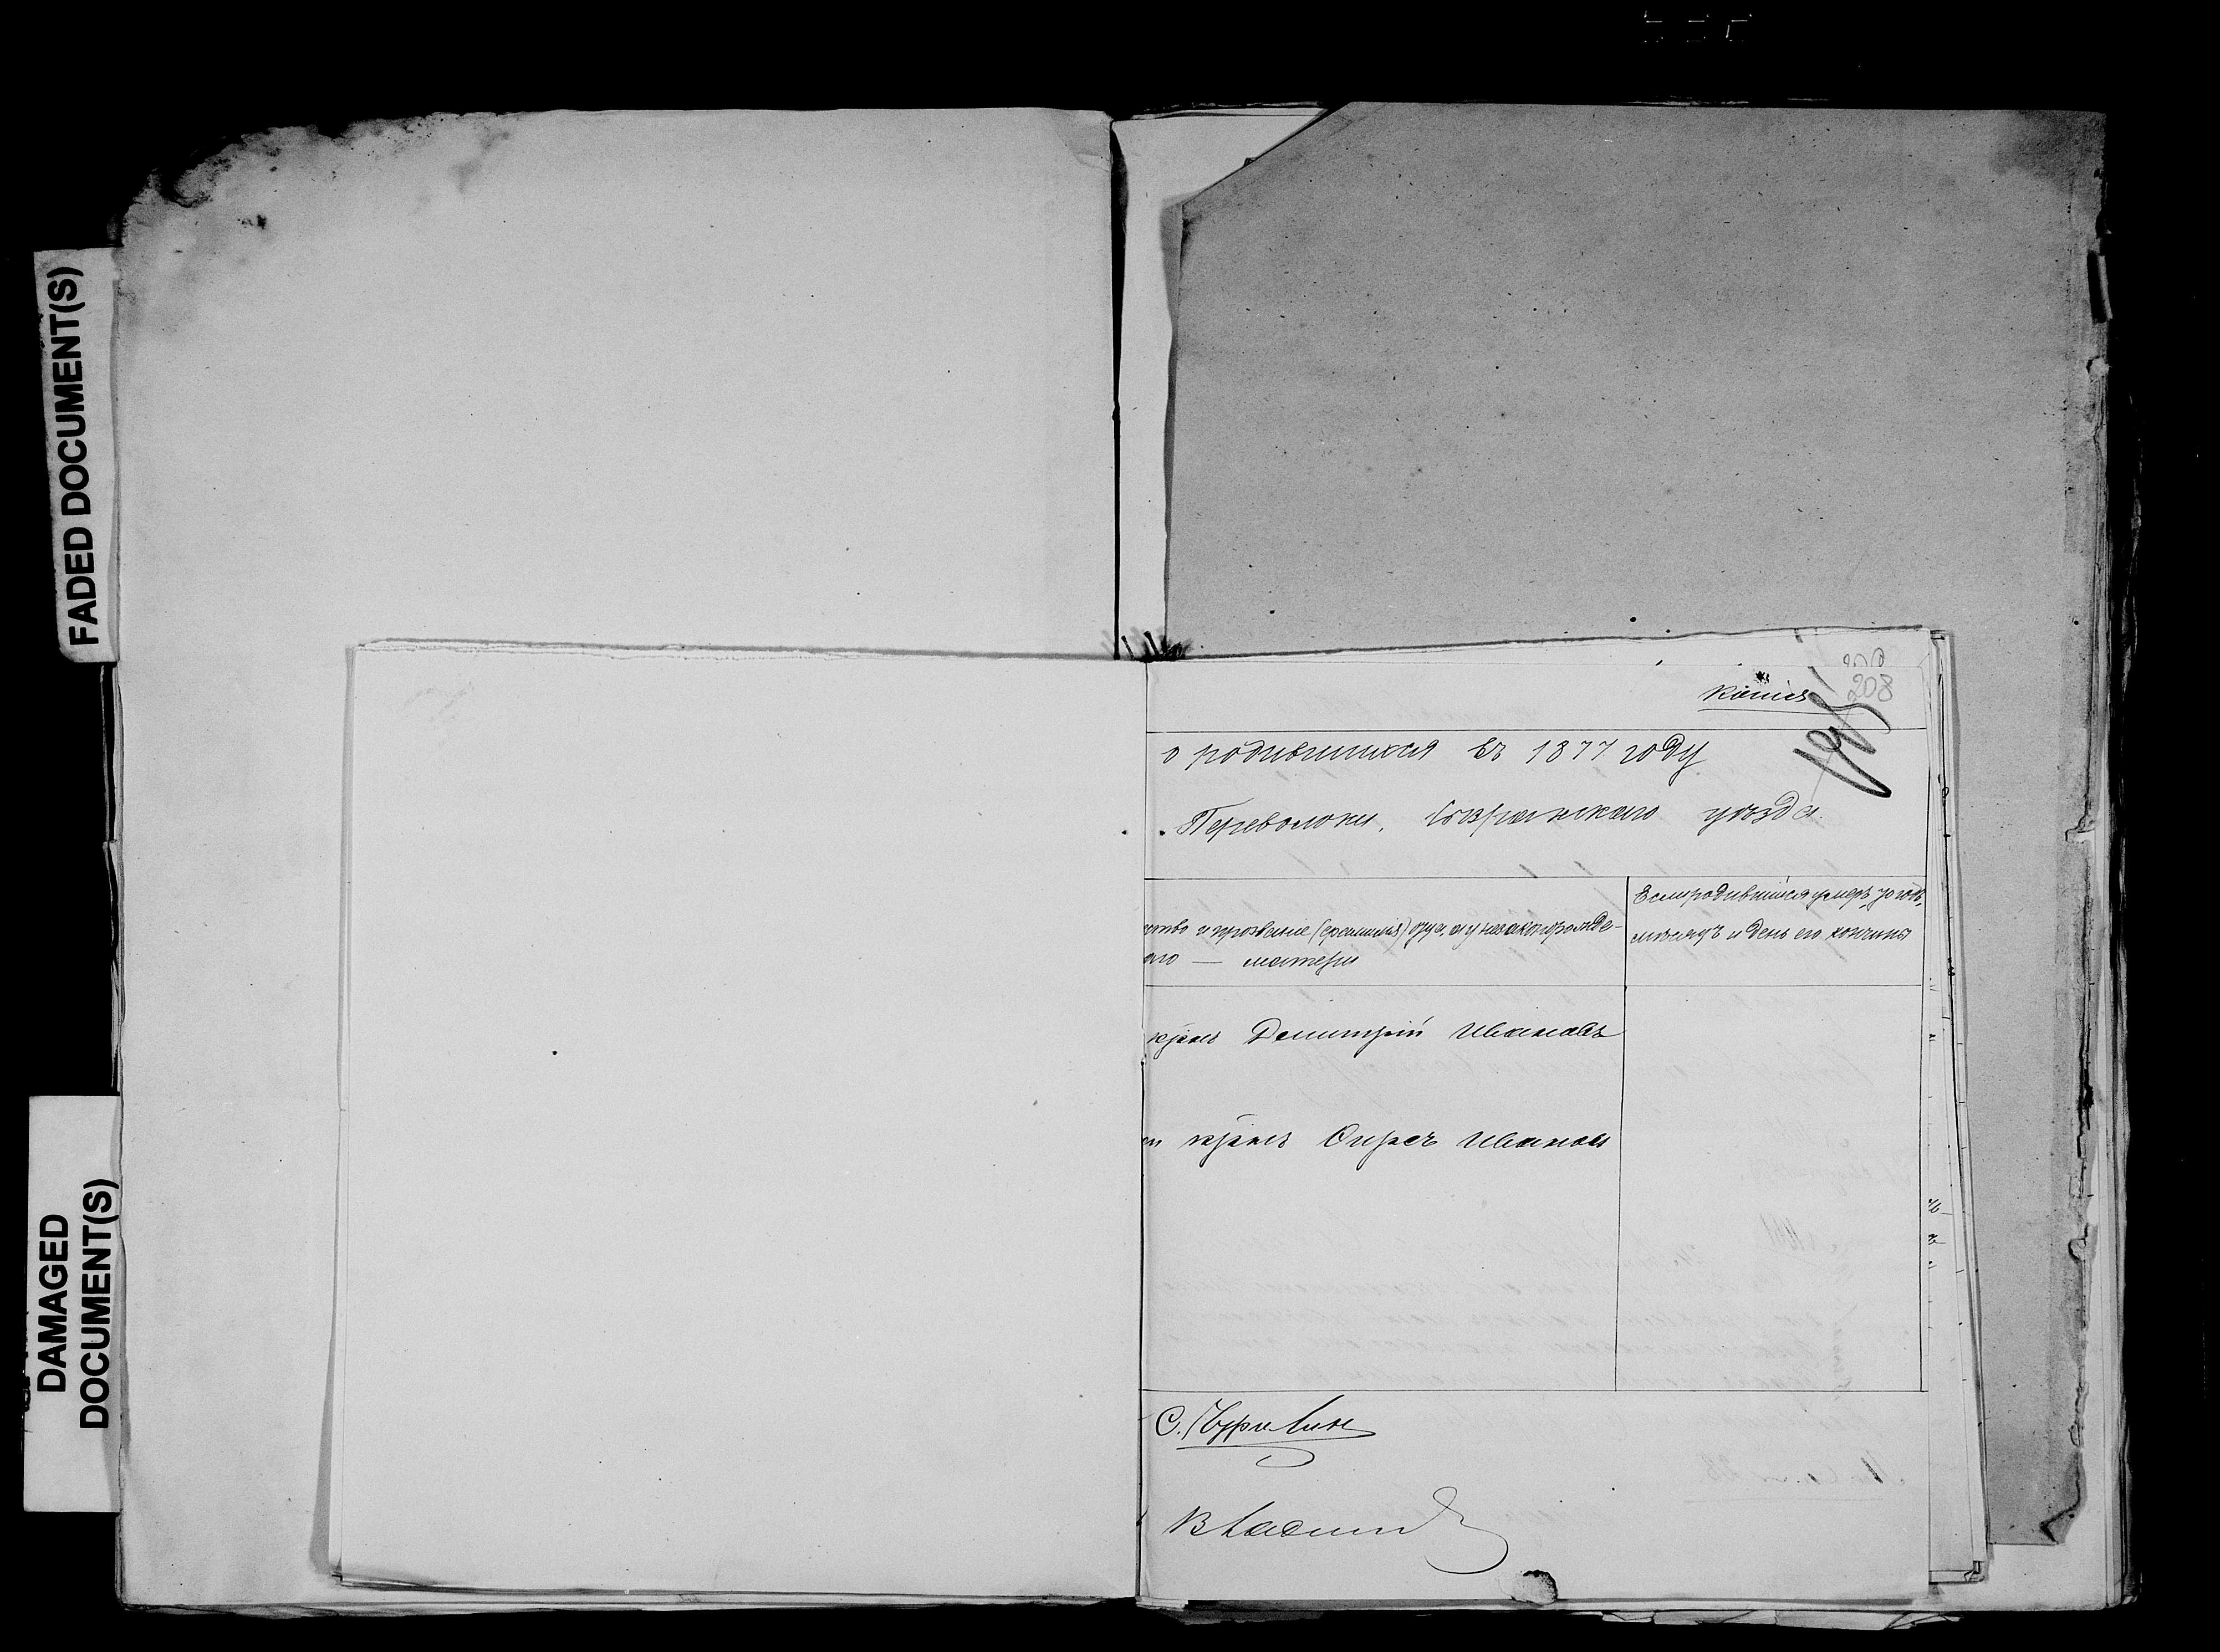 FADED DOCUMENT(S)
DAMAGED
DOCUMENT(S)
208
Копія
о родившихся въ 1877 году
Переволоки, Сызранскаго уѣзда.
ство и прозваніе (фамилія) отца, а у незаконорожде-
аго — матери
Если родившійся умеръ, то годъ,
мѣсяцъ и день его кончины
крест Димитрій Ивановъ
крест Иванов